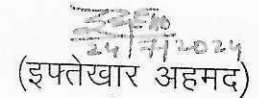 24/7/2024
(इफ्तेखार अहमद)